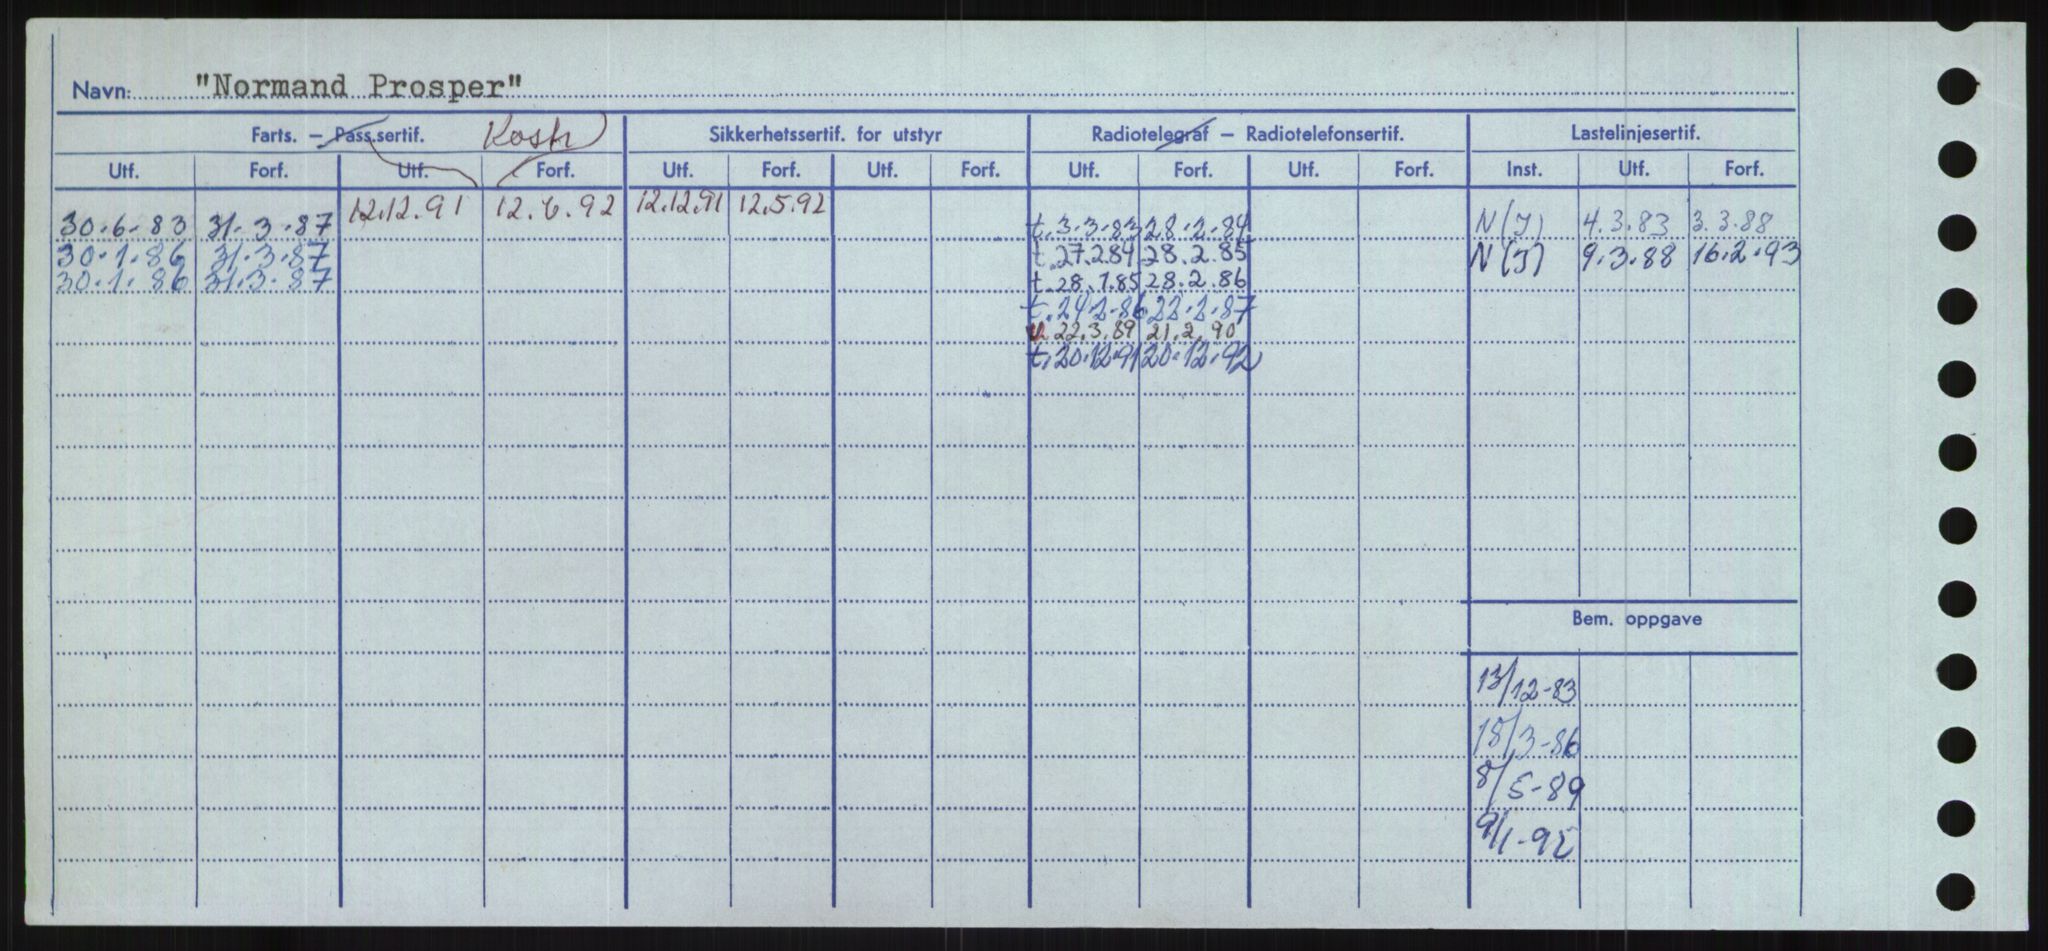 Navn: "Normand Prosper"
Farts. – Pass.sertif. Kostr Sikkerhetssertif. for utstyr Radiotelegraf – Radiotelefonsertif. Lastelinjesertif.
Utf. Forf. Utf. Forf. Utf. Forf. Utf. Forf. Utf. Forf. Utf. Forf. Inst. Utf. Forf.
30.6.83 31.3.87 12.12.91 12.6.92 12.12.91 12.5.92 t.3.3.83 28.2.84 N(I) 4.3.83 3.3.88
30.1.86 31.3.87 t.27.2.84 28.2.85 N(I) 9.3.88 16.2.93
30.1.86 31.3.87 t.28.1.85 28.2.86
t.24.2.86 22.2.87
22.3.89 21.2.90
t.20.12.91 20.12.92
Bem. oppgave
13/12-83
18/3-86
8/5-89
9/1-92